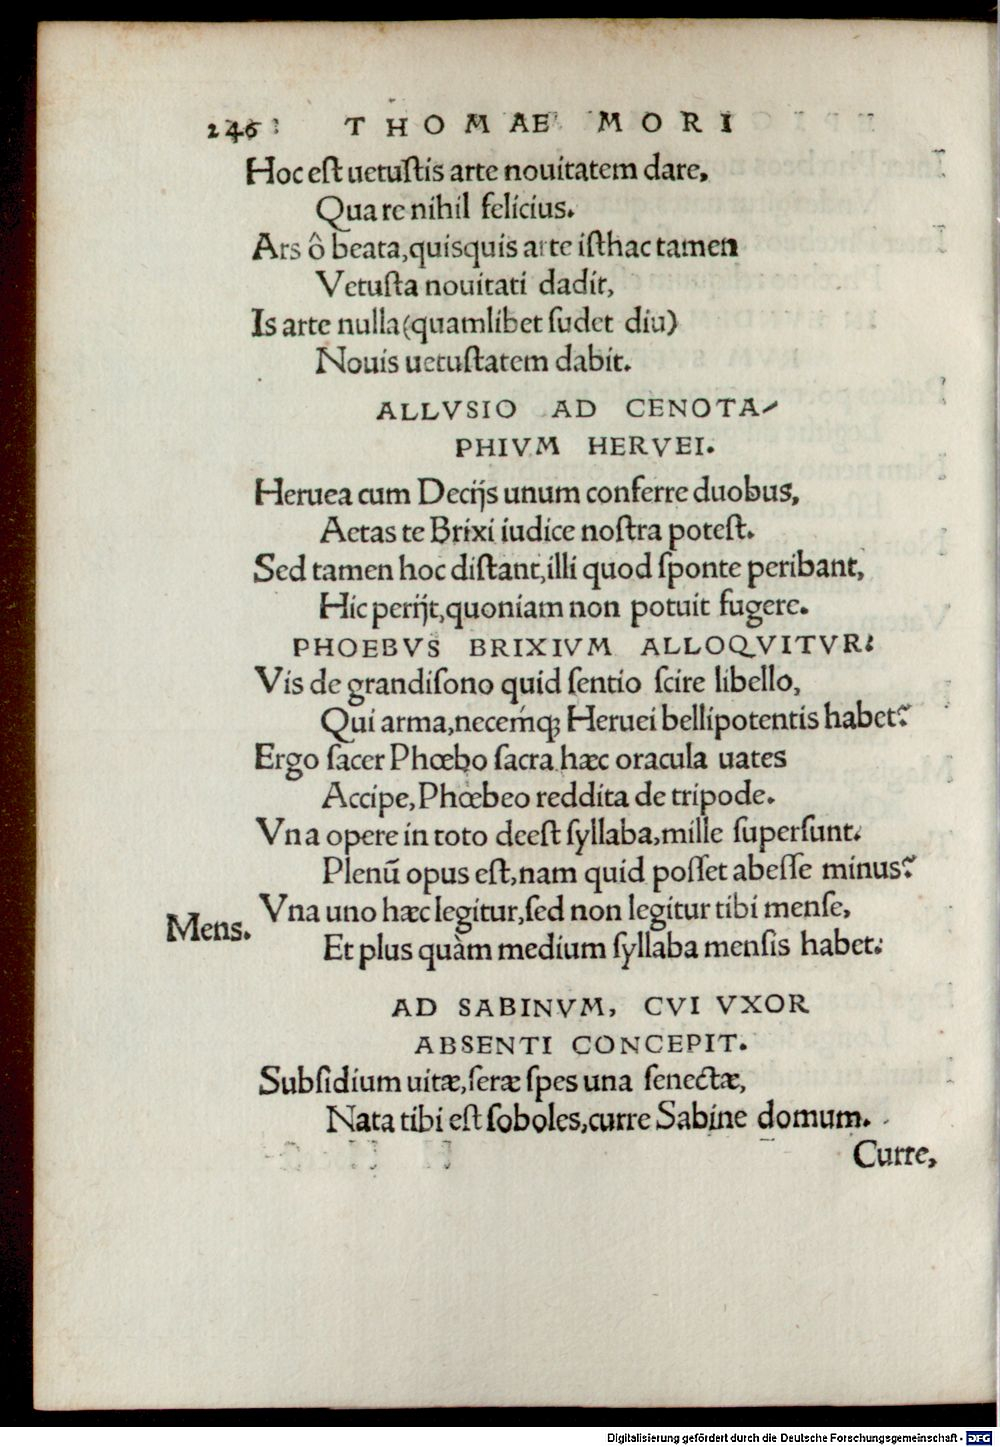 246 THOMAE MORI
Hoc est uetustis arte nouitatem dare,
Qua re nihil felicius.
Ars ô beata, quisquis arte isthac tamen
Vetusta nouitati dadit,
Is arte nulla (quamlibet sudet diu)
Nouis uetustatem dabit.
ALLVSIO AD CENOTA-
PHIVM HERVEI.
Heruea cum Decijs unum conferre duobus,
Aetas te Brixi iudice nostra potest.
Sed tamen hoc distant, illi quod sponte peribant,
Hic perijt, quoniam non potuit fugere.
PHOEBVS BRIXIVM ALLOQVITVR:
Vis de grandisono quid sentio scire libello,
Qui arma, neceḿq; Heruei bellipotentis habet?
Ergo sacer Phœbo sacra hæc oracula uates
Accipe, Phœbeo reddita de tripode.
Vna opere in toto deest syllaba, mille supersunt.
Plenũ opus est, nam quid posset abesse minus?
Vna uno hæc legitur, sed non legitur tibi mense,
Mens.
Et plus quàm medium syllaba mensis habet.
AD SABINVM, CVI VXOR
ABSENTI CONCEPIT.
Subsidium uitæ, seræ spes una senectæ,
Nata tibi est soboles, curre Sabine domum.
Curre,
Digitalisierung gefördert durch die Deutsche Forschungsgemeinschaft - DFG